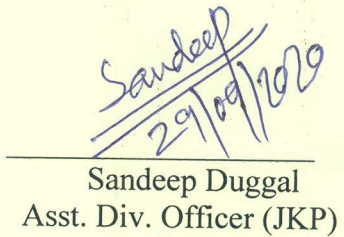 Sandeep
29/09/2020
Sandeep Duggal
Asst. Div. Officer (JKP)